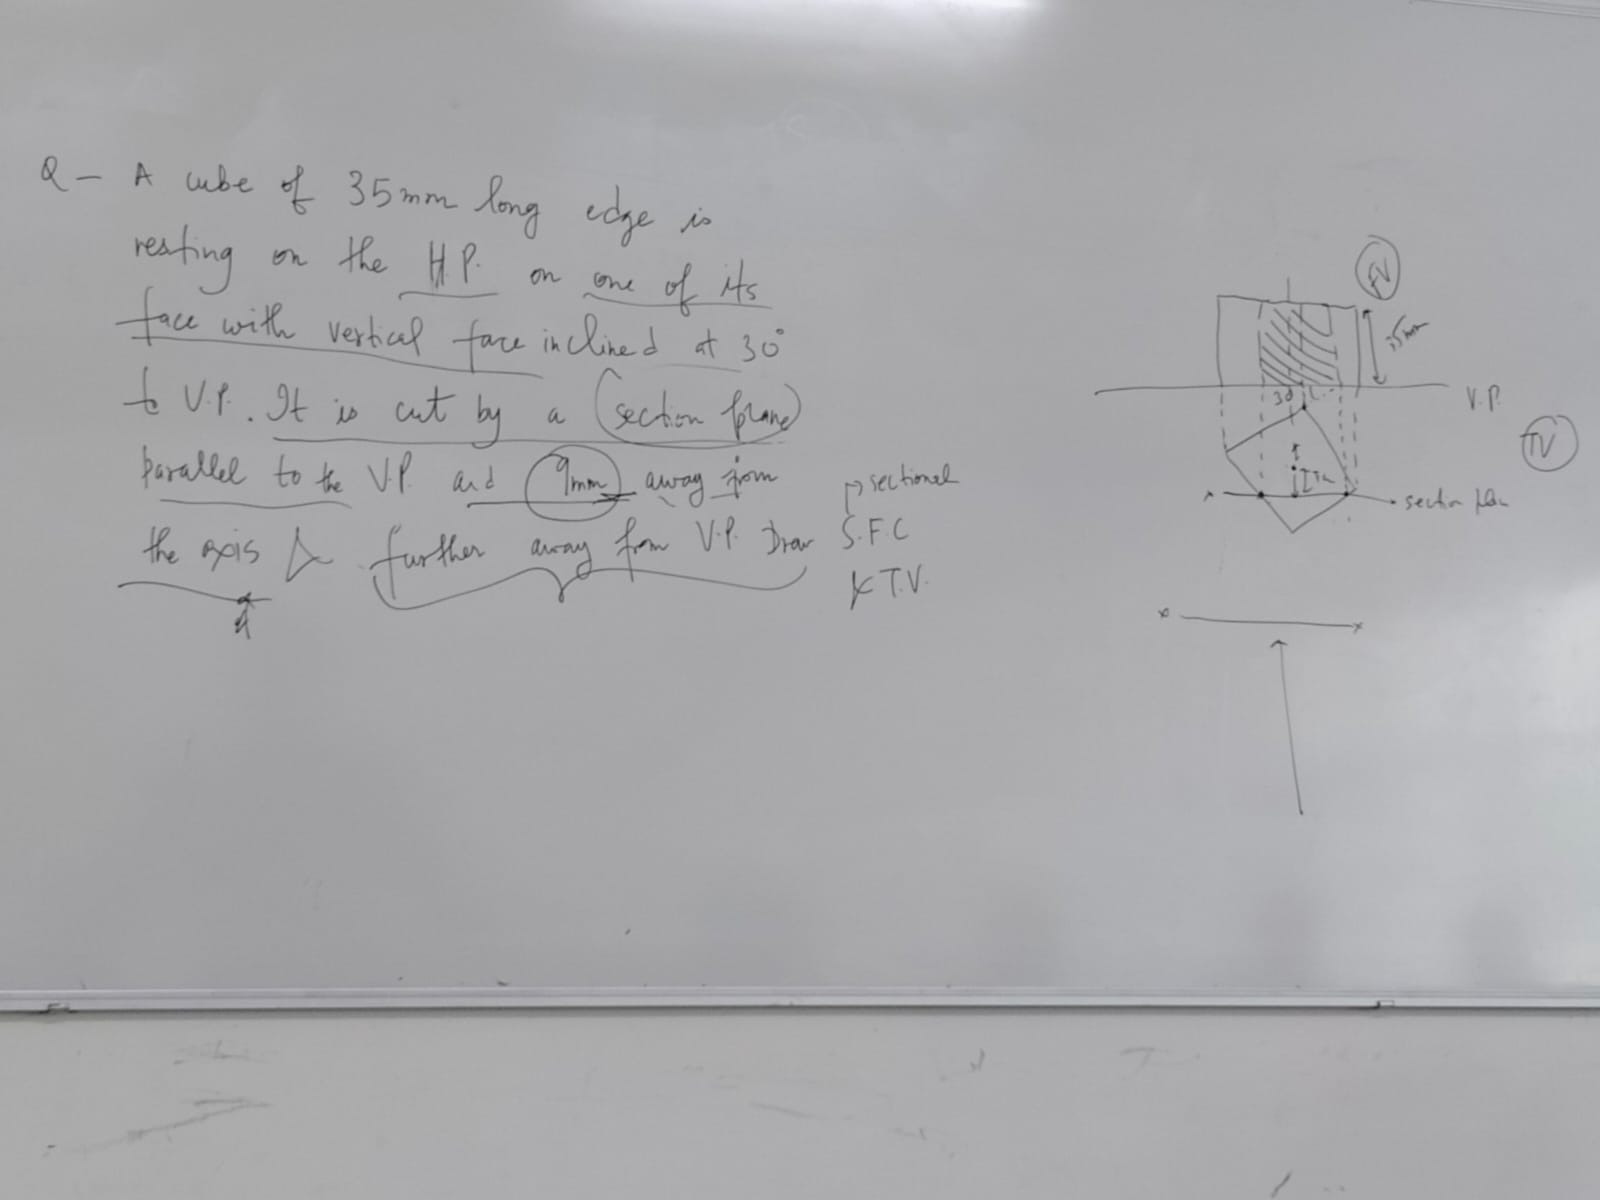 Q - A cube of 35mm long edge is
resting on the H.P. on one of its
face with vertical face inclined at 30°
to V.P. It is cut by a section plane
parallel to the V.P. and 9mm away from
the axis & further away from V.P. Draw S.F.C
sectional
& T.V.
FV
35mm
30
V.P.
TV
section plan